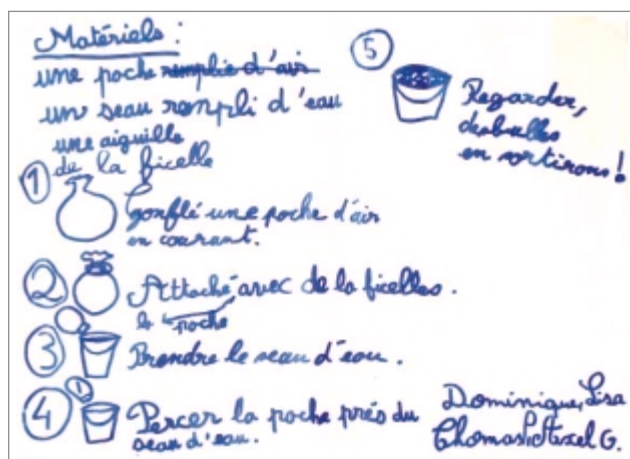 Matériels :
une poche remplie d'air
un seau rempli d'eau
une aiguille
de la ficelle
1
gonflé une poche d'air
en courant.
2
Attaché avec de la ficelles.
la poche
3
Prendre le seau d'eau.
4
Percer la poche prés du
seau d'eau.
5
Regarder,
des bulles
en sortirons !
Dominique, Lisa
Thomas P. Axel G.